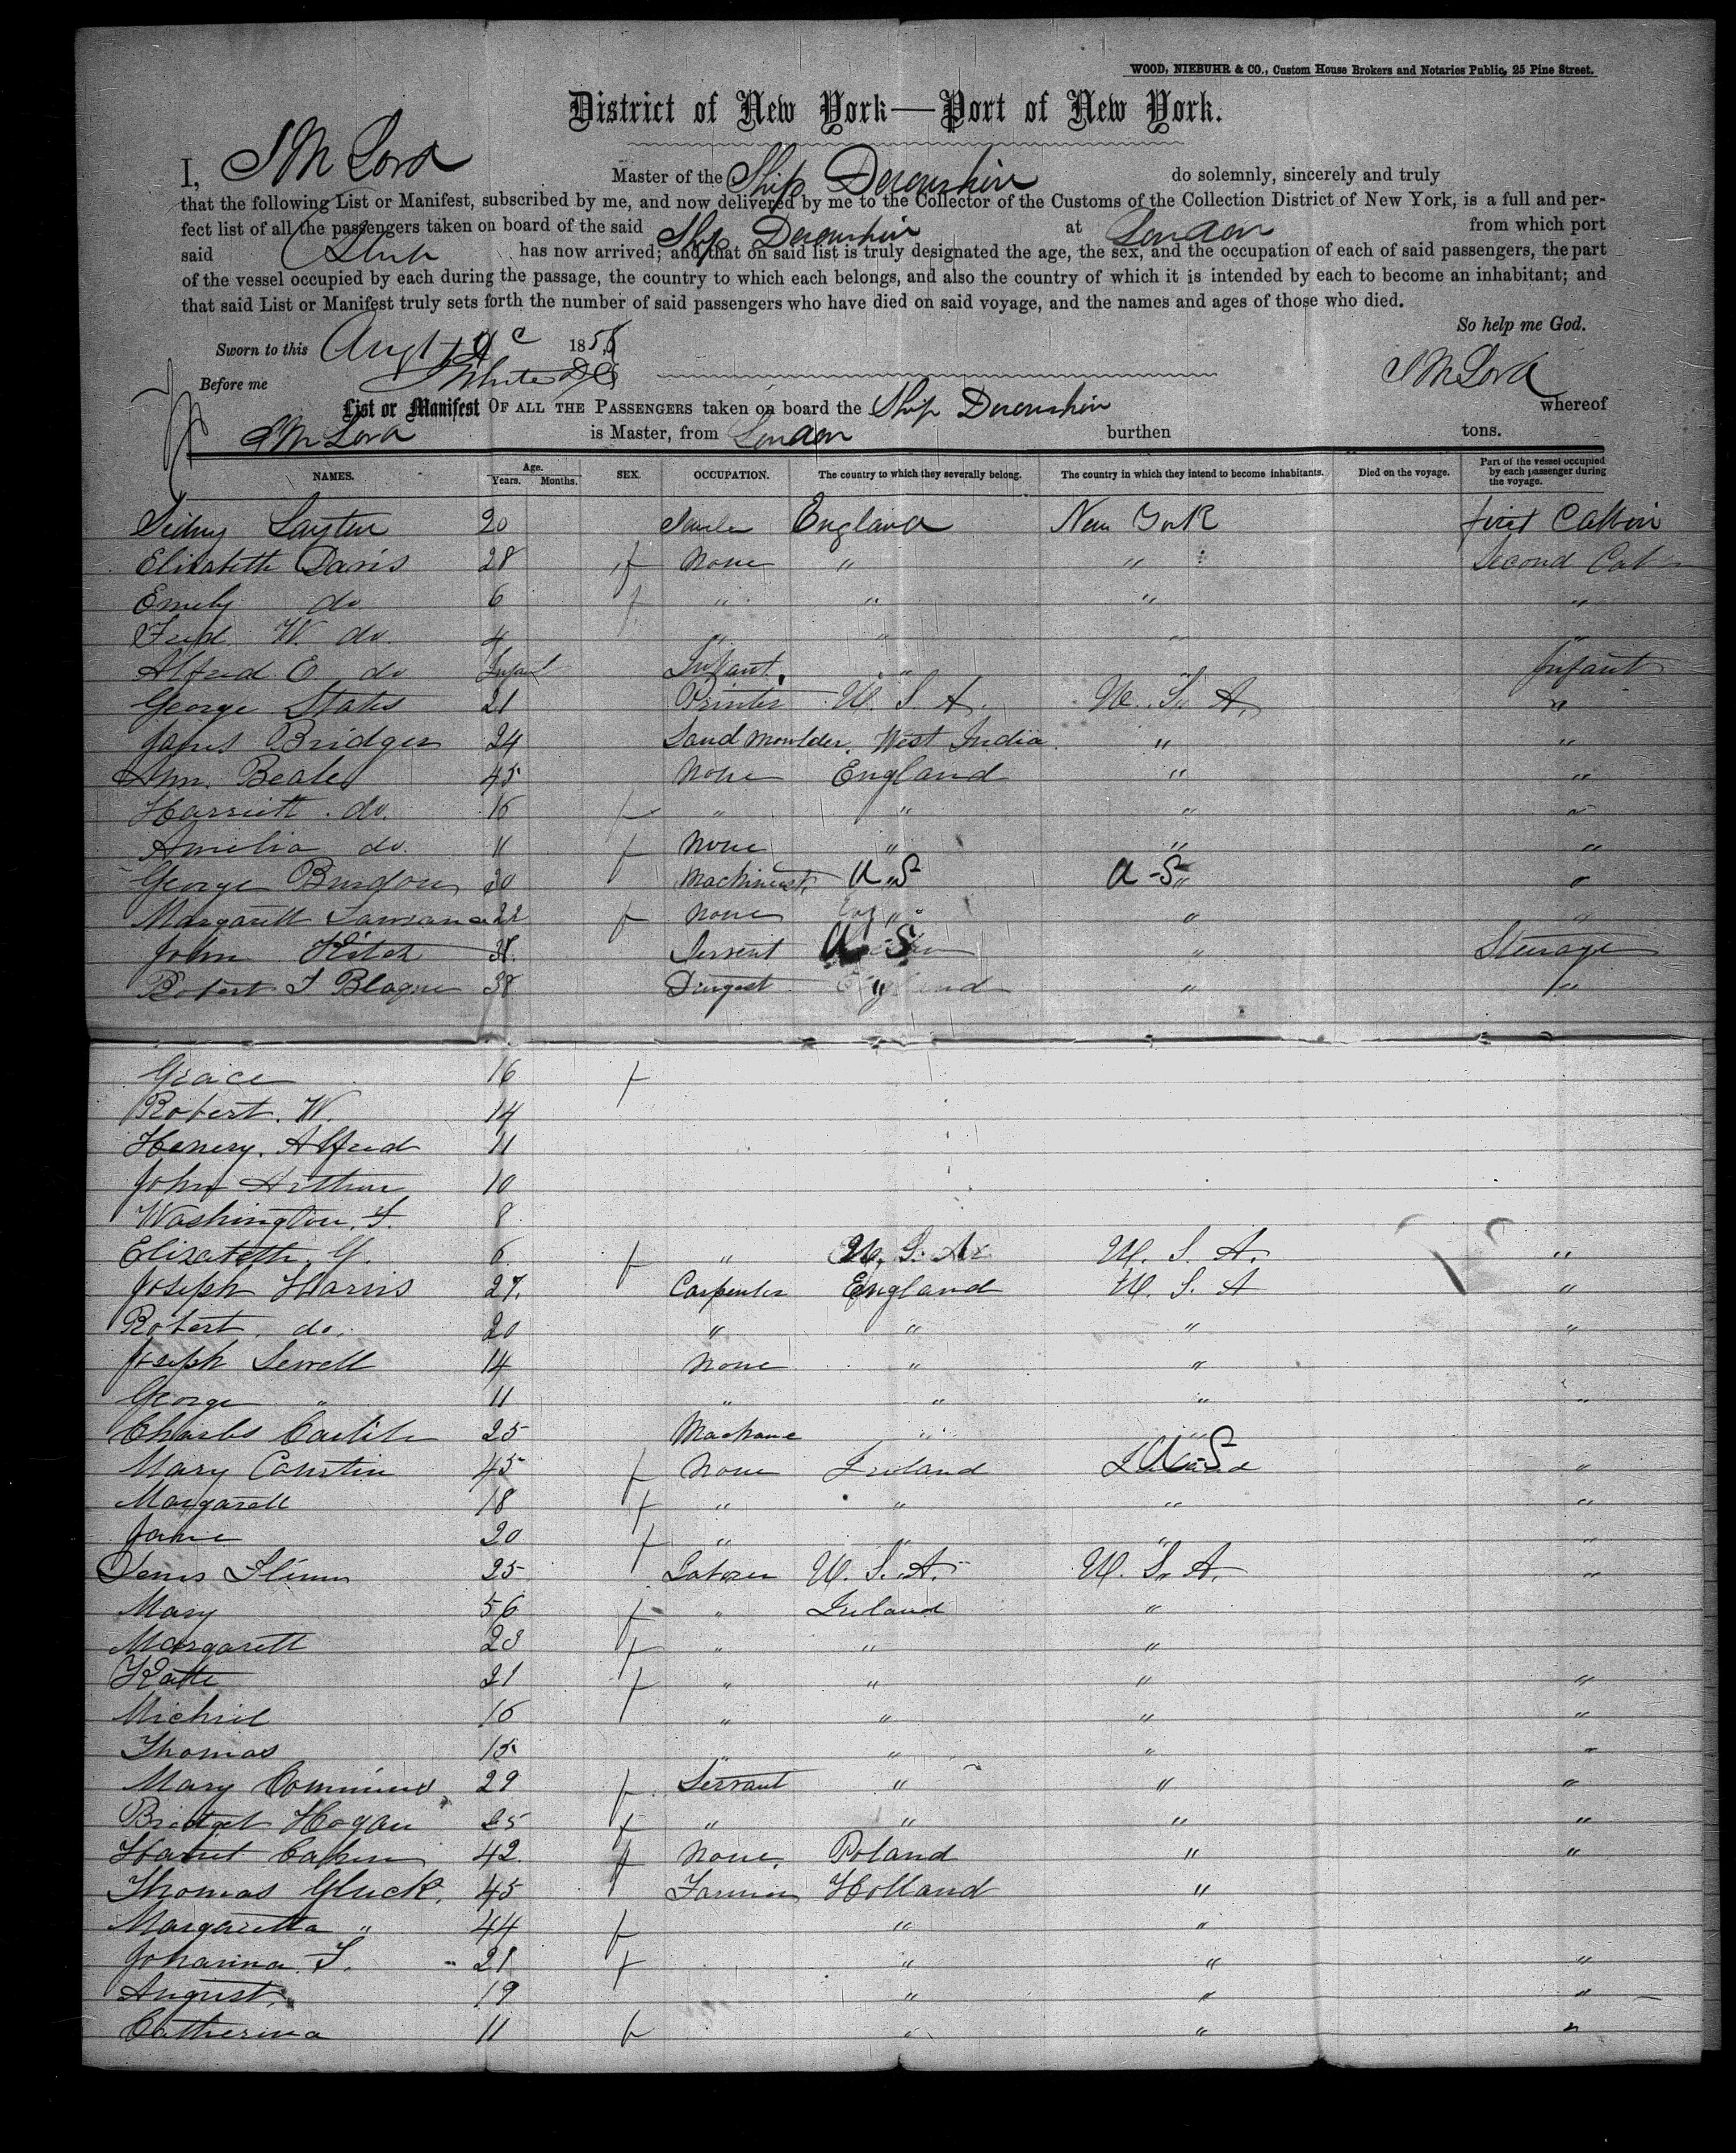 WOOD, NIEBUHR & CO., Custom House Brokers and Notaries Public, 25 Pine Street.
District of New York—Port of New York.
I, S M Lord Master of the Ship Devonshire do solemnly, sincerely and truly
that the following List or Manifest, subscribed by me, and now delivered by me to the Collector of the Customs of the Collection District of New York, is a full and per-
fect list of all the passengers taken on board of the said Ship Devonshire at London from which port
said Ship has now arrived; and that on said list is truly designated the age, the sex, and the occupation of each of said passengers, the part
of the vessel occupied by each during the passage, the country to which each belongs, and also the country of which it is intended by each to become an inhabitant; and
that said List or Manifest truly sets forth the number of said passengers who have died on said voyage, and the names and ages of those who died.
So help me God.
Sworn to this Augt 185
Before me White S M Lord
List or Manifest OF ALL THE PASSENGERS taken on board the Ship Devonshire whereof
S M Lord is Master, from London burthen tons.
NAMES. Age. Years. Months. SEX. OCCUPATION. The country to which they severally belong. The country in which they intend to become inhabitants. Died on the voyage. Part of the vessel occupied by each passenger during the voyage.
Sidney 20 England New York first Cabbin
Elizabeth Davis 28 f None " " Second Cab
Emely do 6 f " " " "
Fred W do. 4 " " " "
Alfred E do Infant Infant. " " Infant
George States 21 Printer U. S. A. U. S. A. "
James Bridger 24 Sand Moulder. West India. " "
Beale 45 None England " "
Harriett do. 16 f " " " "
Amelia do. 11 f None " " "
George 20 Machineest U S U S " "
Margarett 22 f None " " "
John Kitch 38. Servent U S " Steurage
Robert S Blague 38 " " "
Grace 16 f
Robert. W. 14
Henery. Alfred 11
John Arthur 10
Washington. 8
Elizabeth. G. 6 f " U. S. A. U. S. A. "
Joseph Harris 27. Carpenter England U. S. A "
Robert. do. 20 " " " "
Joseph Sewell 14 None " "
George " 11 " " " "
Charles 25 " "
Mary 45 f None Ireland U S "
Margarett 18 f " " " "
Jane 20 f " " " "
25 Laborer U. S. A. U. S. A. "
Mary 56 f " Ireland "
Margarett 23 f " " "
Katte 21 f " " " "
Michiel 16 " " " "
Thomas 15 " " " "
Mary 29 f Servant " " "
Bridget Hogan 25 f " " " "
42. f None. Poland " "
Thomas Gluck. 45 Farmer Holland "
Margaretta " 44 f " "
Johanna 21 f " " "
August. 19 " " "
Catherina 11 f " " "